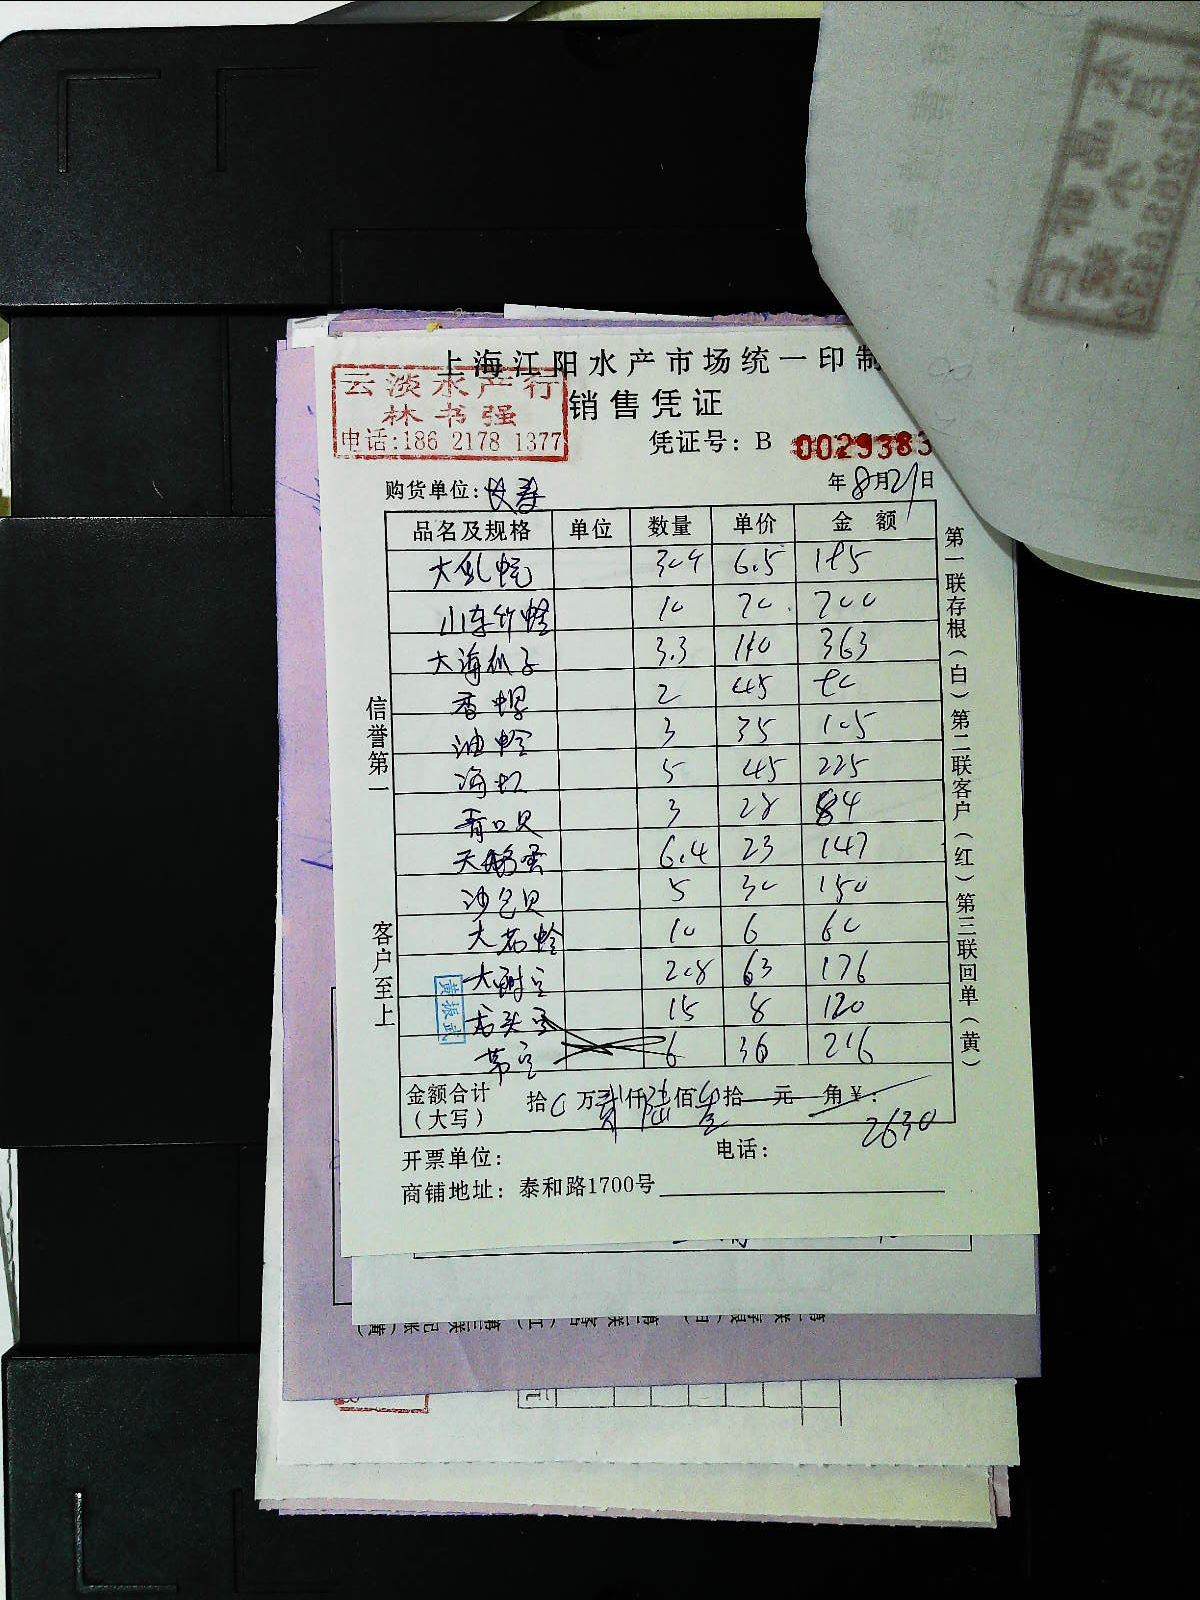 上海江阳水产市场统一印制
云淡水产行
林书强
电话:186 2178 1377
销售凭证
凭证号: B 0029383
购货单位:长寿
年8月21日
品名及规格 单位 数量 单价 金额
大 6.5 185
山东竹蛏 10 70 700
大海瓜子 3.3 110 363
香螺 2 45 90
油蛤 3 35 105
海虹 5 45 225
青口贝 3 28 84
天鹅蛋 6.4 23 147
沙包贝 5 30 150
大花蛤 10 6 60
大 2.8 63 176
15 8 120
6 36 216
金额合计
(大写)
拾0万贰仟陆佰叁拾 元 角¥:
2630
开票单位:
电话:
商铺地址: 泰和路1700号
信誉第一
客户至上
黄振武
第一联存根(白)第二联客户(红)第三联回单(黄)